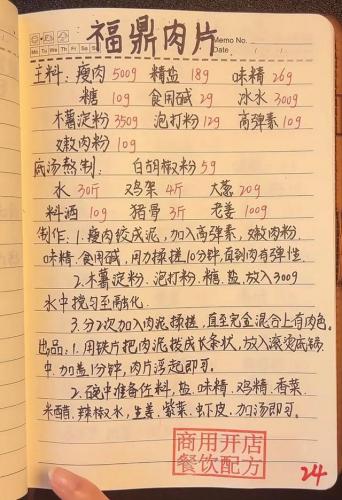 福鼎肉片
Memo No.
Mo Tu We Th Fr Sa Su
Date
主料：瘦肉 500g 精盐 18g 味精 26g
糖 10g 食用碱 2g 冰水 300g
木薯淀粉 350g 泡打粉 12g 高弹素 10g
嫩肉粉 10g
底汤熬制： 白胡椒粉 5g
水 30斤 鸡架 4斤 大葱 20g
料酒 10g 猪骨 3斤 老姜 100g
制作：1.瘦肉绞成泥，加入高弹素，嫩肉粉
味精.食用碱，用力揉搓10分钟，直到肉有弹性.
2.木薯淀粉.泡打粉.糖.盐.放入300g
水中搅匀至融化.
3.分2次加入肉泥揉搓，直至完全混合上有肉色.
出品：1.用铁片把肉泥拨成长条状，放入滚烫底锅
中.加盖1分钟，肉片浮起即可.
2.碗中准备佐料，盐.味精.鸡精.香菜.
米醋.辣椒水，生姜.紫菜.虾皮.加汤即可.
商用开店
餐饮配方
24